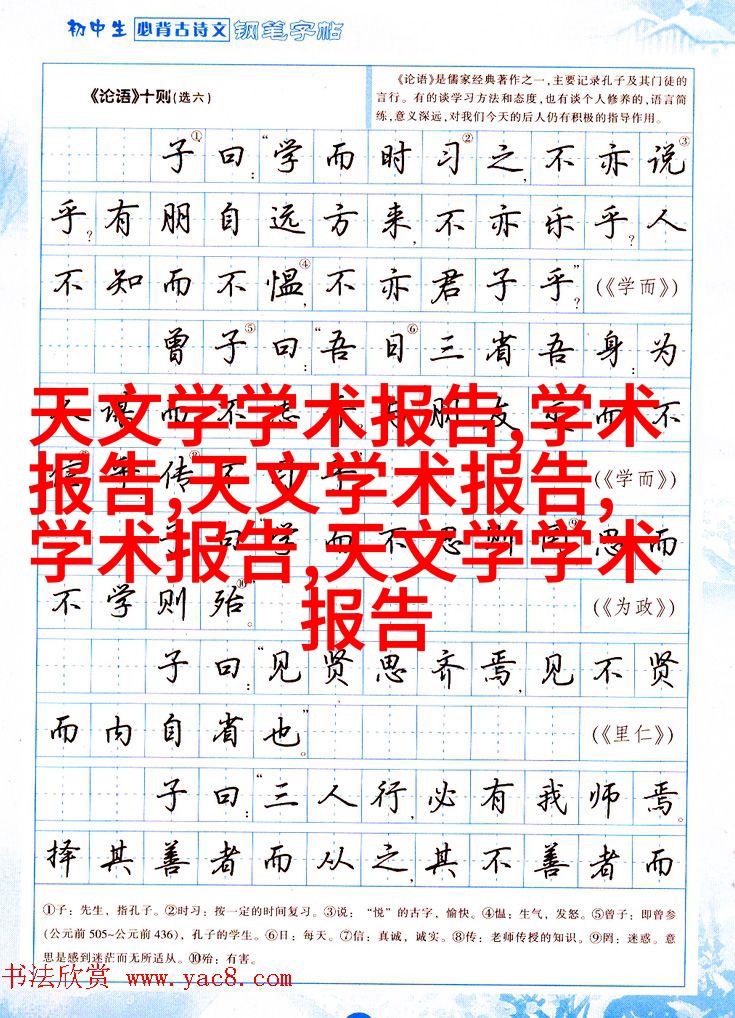 初中生 必背古诗文 钢笔字帖
《论语》十则(选六)
《论语》是儒家经典著作之一,主要记录孔子及其门徒的
言行。有的谈学习方法和态度,也有谈个人修养的,语言简
练,意义深远,对我们今天的后人仍有积极的指导作用。
子①曰:“学而时习②之,不亦说③
乎?有朋自远方来,不亦乐乎?人
不知而不愠④,不亦君子乎?”(《学而》)
曾子⑤曰:“吾日⑥三省吾身:为
而不 友 而不
传 不习 (《学而》)
曰 学而不思则罔⑨思而
不学则殆⑩。(《为政》)
子曰:“见贤思齐焉,见不贤
而内自省也。”(《里仁》)
子曰:“三人行,必有我师焉。
择其善者而从之,其不善者而
天文学学术报告,学术
报告,天文学术报告,
学术报告,天文学学术
报告
①子:先生,指孔子。②时习:按一定的时间复习。③说:“悦”的古字,愉快。④愠:生气,发怒。⑤曾子:即曾参
(公元前505~公元前436),孔子的学生。⑥日:每天。⑦信:真诚,诚实。⑧传:老师传授的知识。⑨罔:迷惑。意
思是感到迷茫而无所适从。⑩殆:有害。
书法欣赏 www.yac8.com